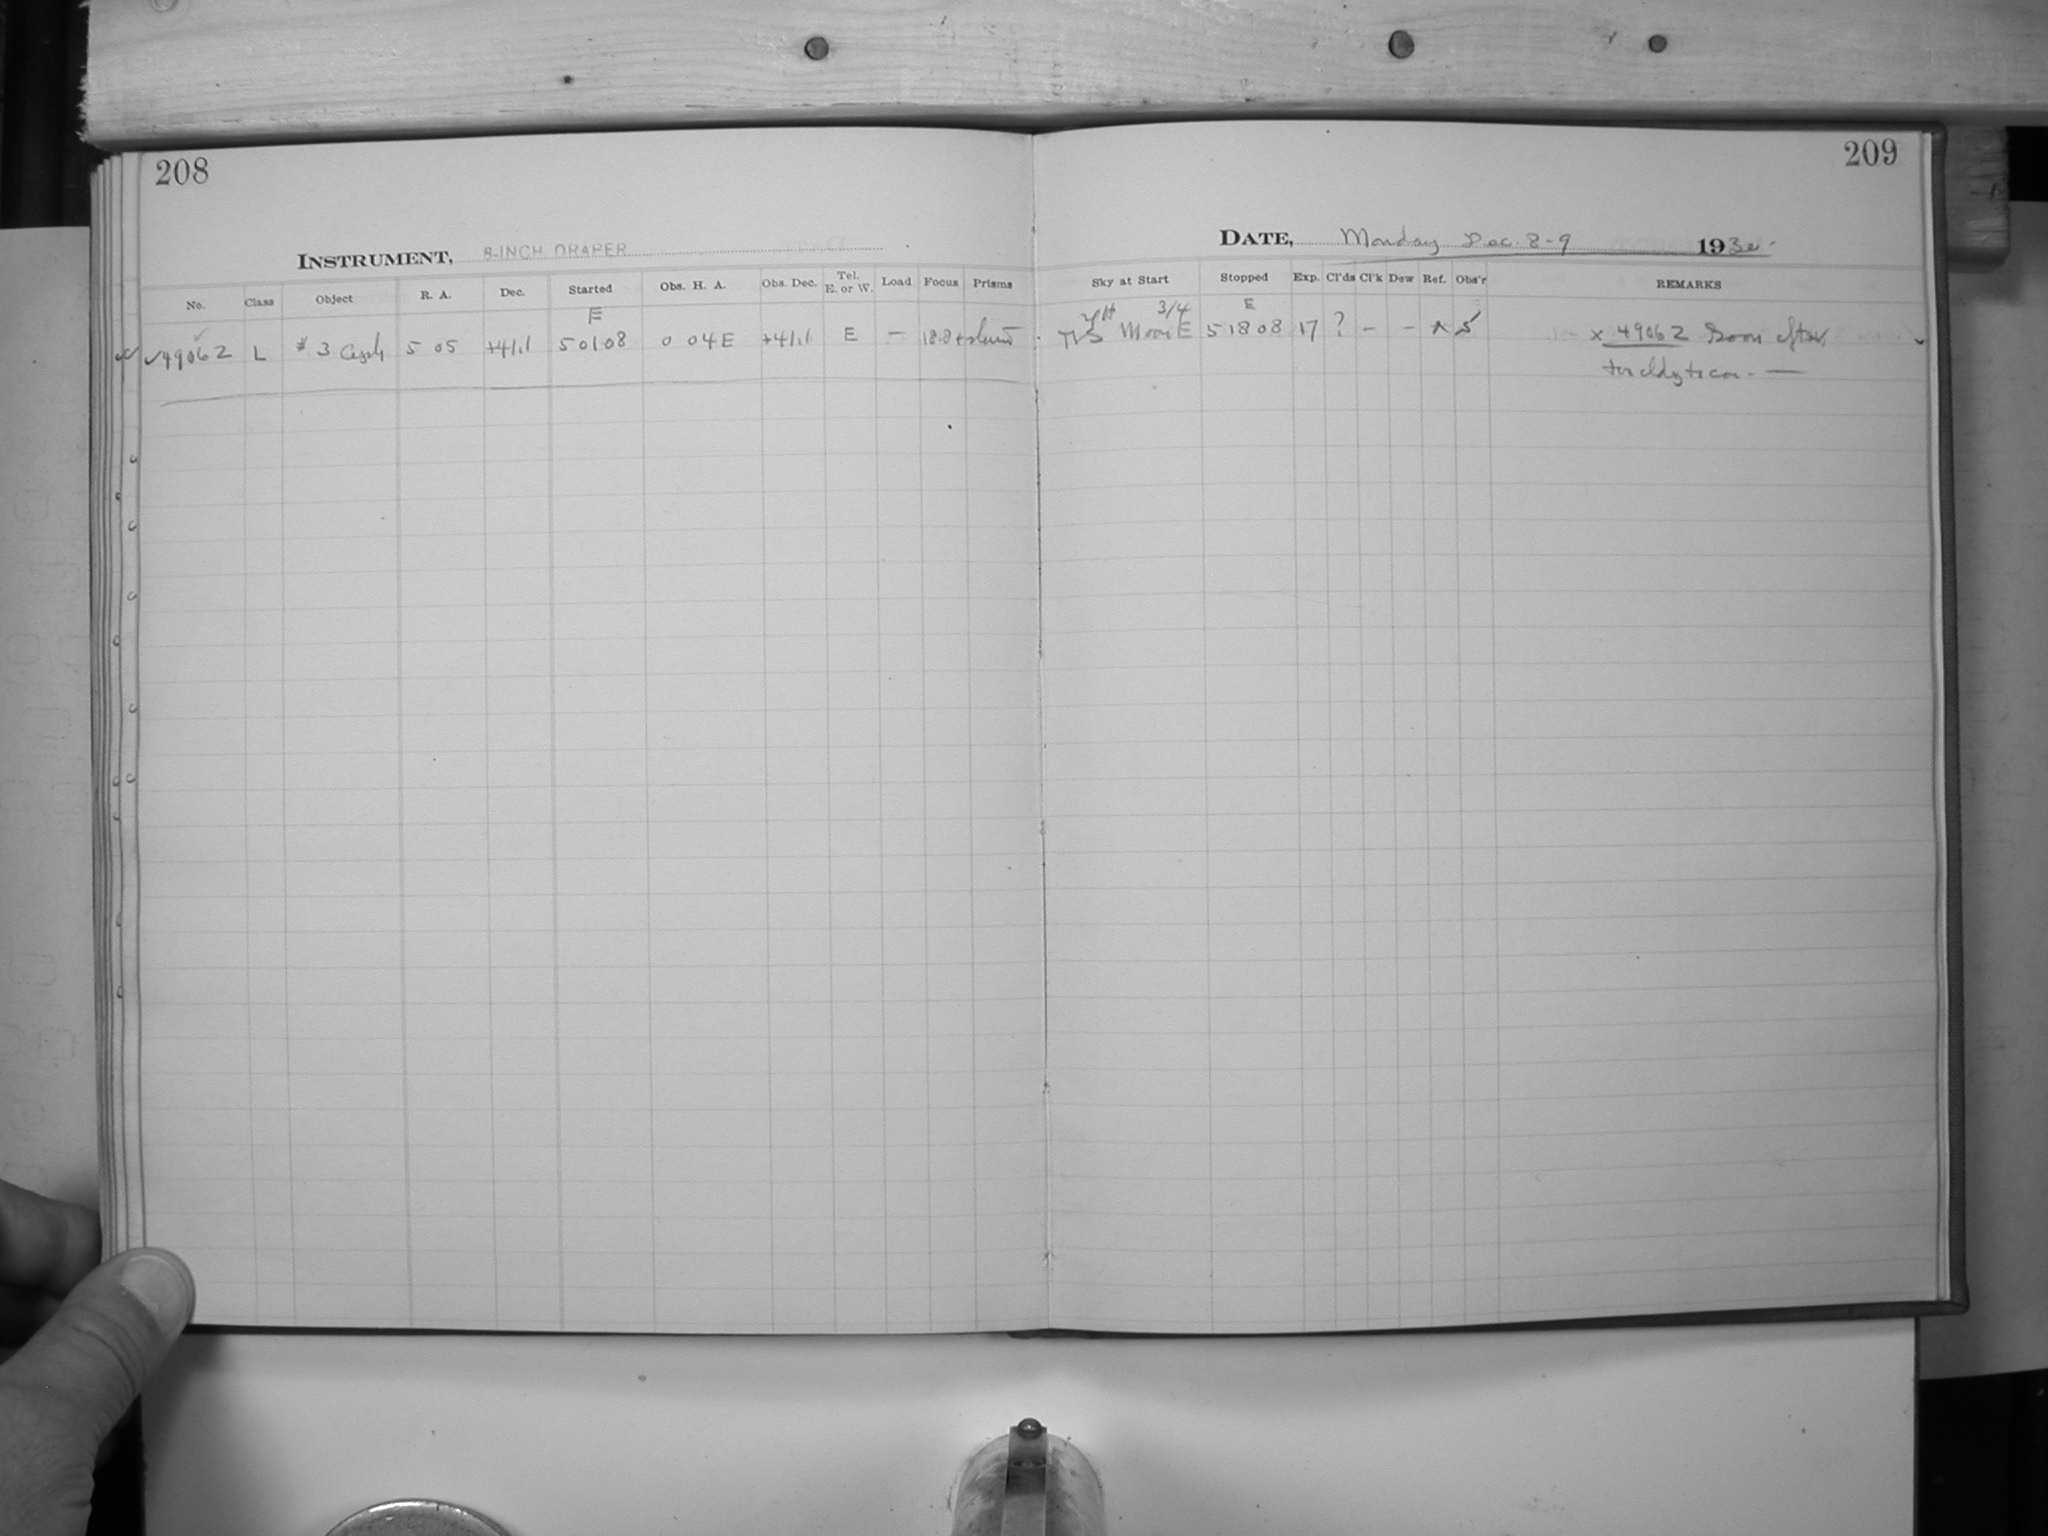 208
209
INSTRUMENT, 8-INCH DRAPER
DATE, Monday Dec. 8-9 1930
No. Class Object R. A. Dec. Started Obs. H. A. Obs. Dec. Tel. E. or W. Load Focus Prisms
Sky at Start Stopped Exp. Cl'ds Cl'k Dew Ref. Obs'r REMARKS
E
3/4 E
49062 L 3 5 05 +41.1 5 01 08 0 04 E +41.1 E —
Moon E 5 18 08 17 ? – –
x 49062 Soon after